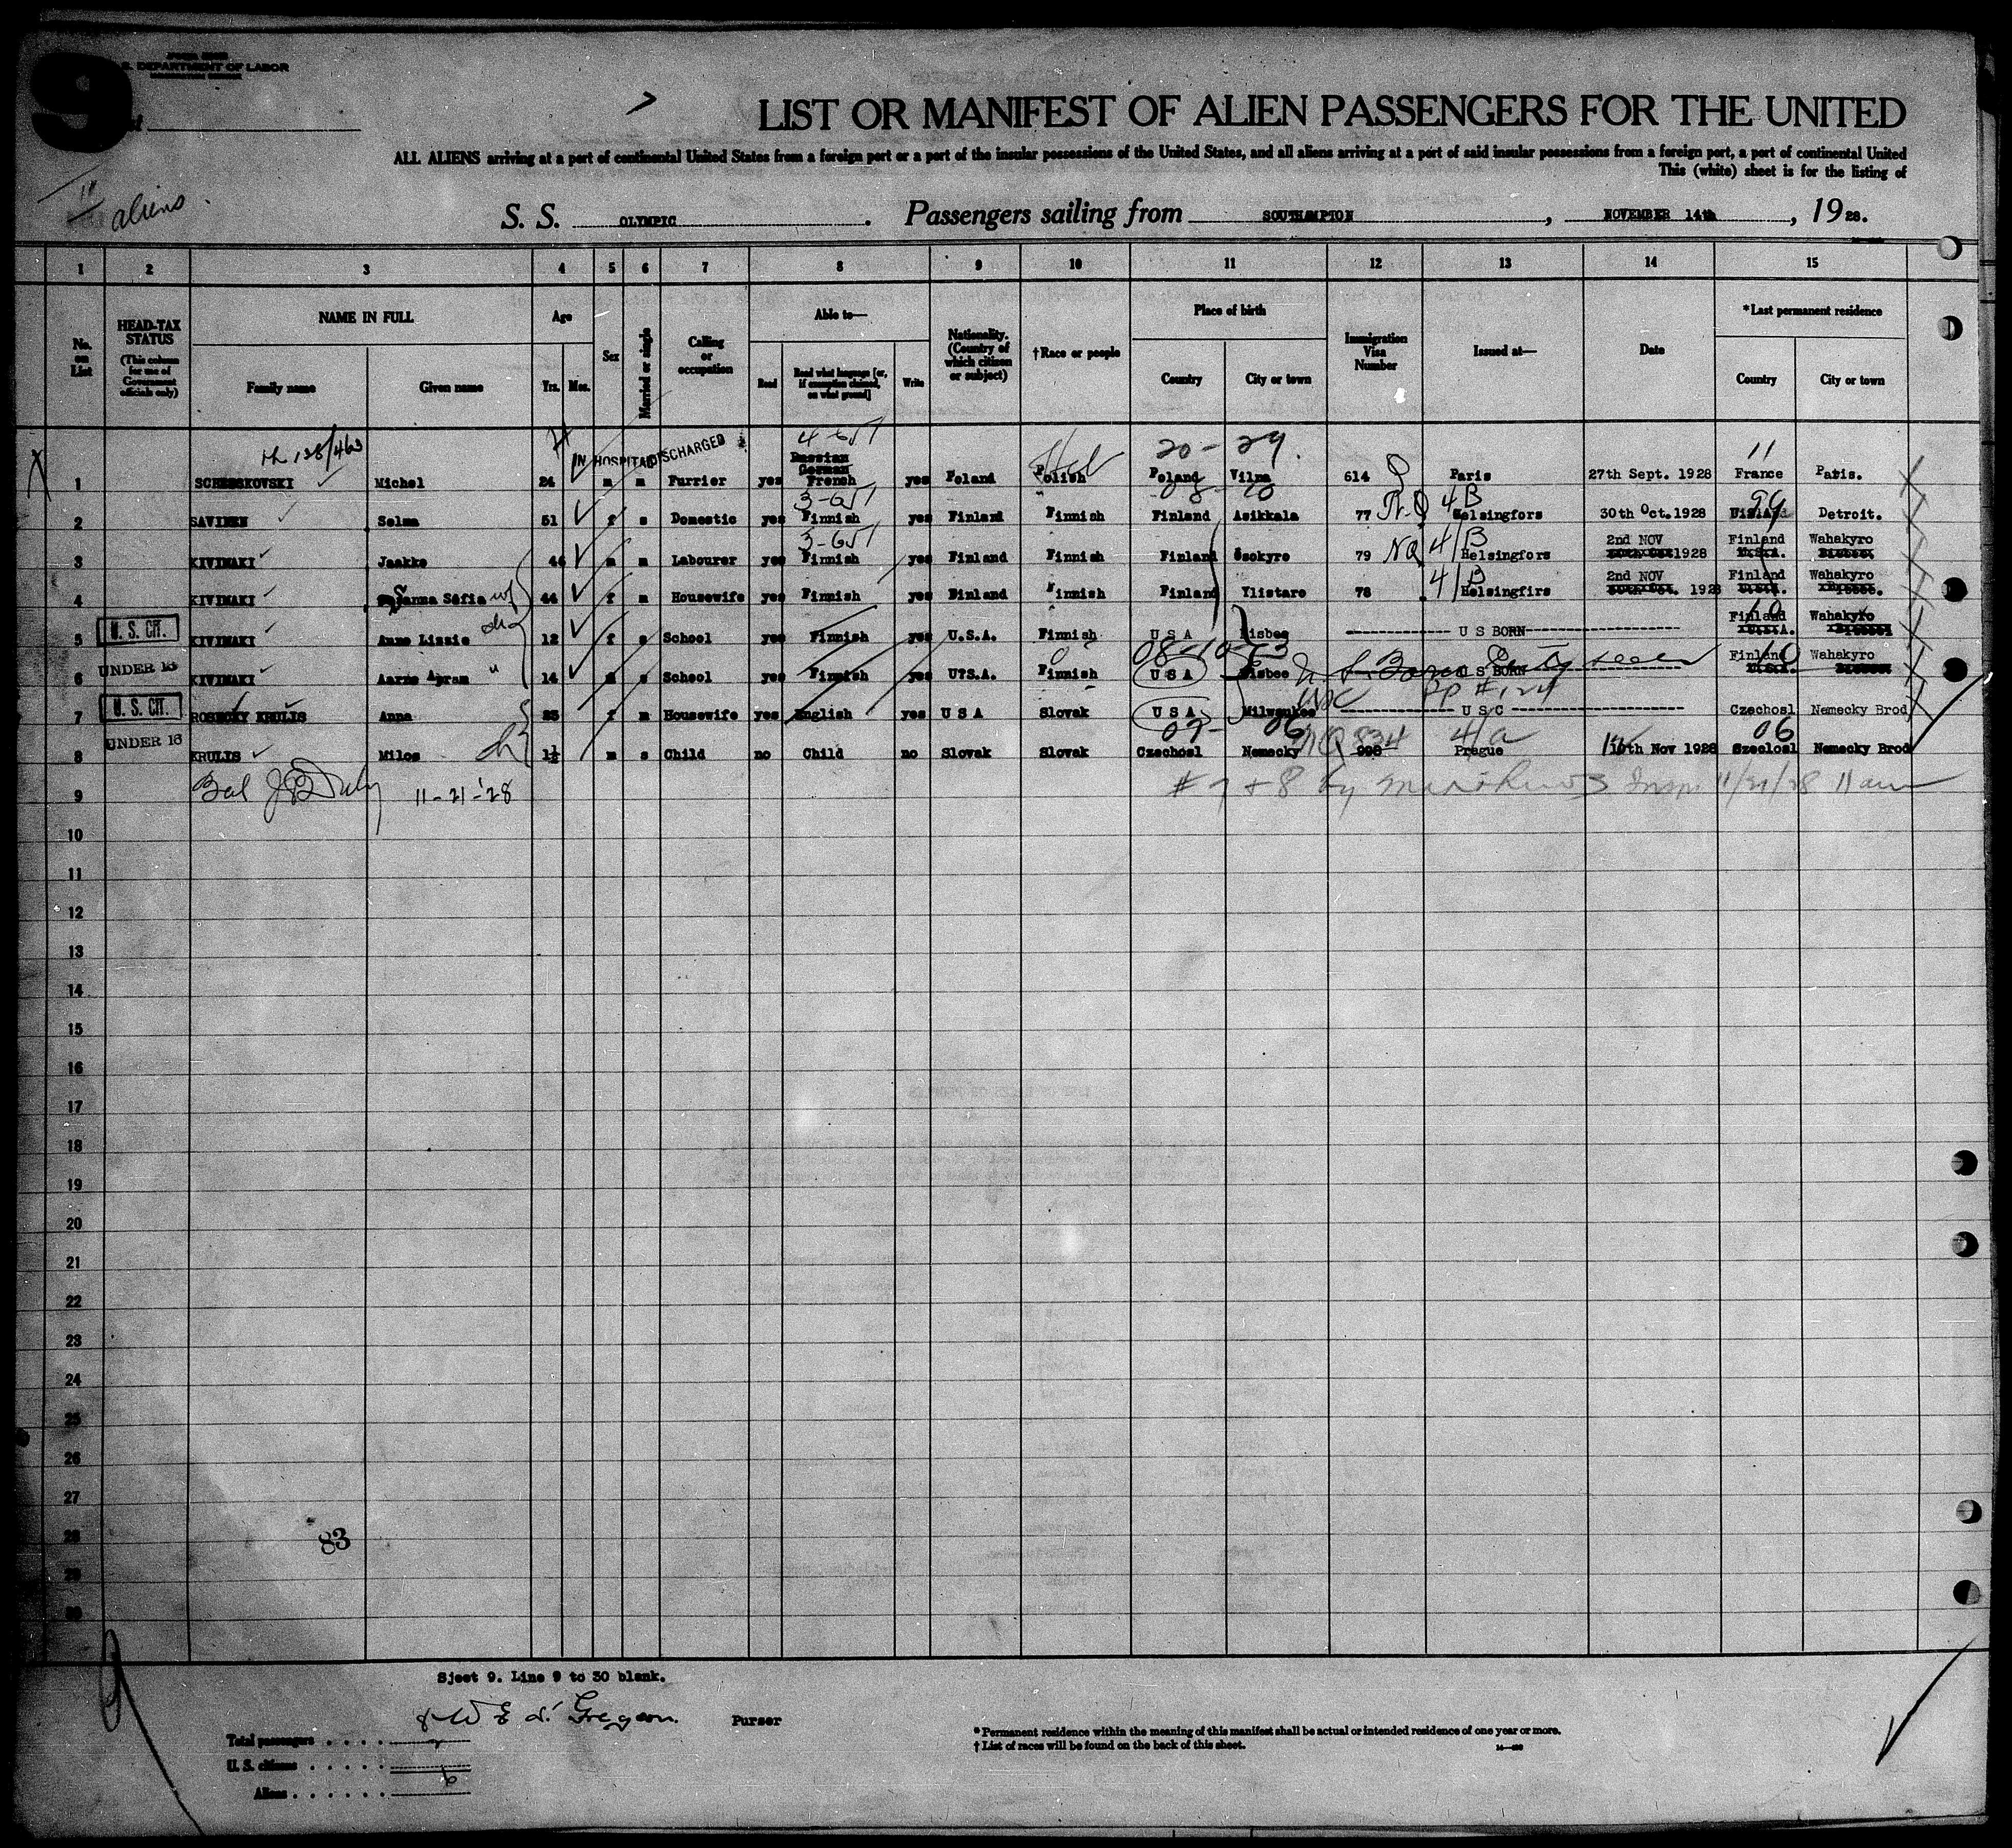 9
U. S. DEPARTMENT OF LABOR
LIST OR MANIFEST OF ALIEN PASSENGERS FOR THE UNITED
ALL ALIENS arriving at a port of continental United States from a foreign port or a port of the insular possessions of the United States, and all aliens arriving at a port of said insular possessions from a foreign port, a port of continental United
This (white) sheet is for the listing of
aliens
S. S. OLYMPIC. Passengers sailing from SOUTHAMPTON, NOVEMBER 14th, 1928.
1 2 3 4 5 6 7 8 9 10 11 12 13 14 15
No. on List
HEAD-TAX STATUS (This column for use of Government officials only)
NAME IN FULL Family name Given name
Age Yrs. Mos.
Sex
Married or single
Calling or occupation
Able to— Read Read what language [or, if exemption claimed, on what ground] Write
Nationality. (Country of which citizen or subject)
†Race or people
Place of birth Country City or town
Immigration Visa Number
Issued at—
Date
*Last permanent residence Country City or town
IN HOSPITAL DISCHARGED 4-651 20-29. 11
1 Michel 24 m m Furrier yes Russian German French yes Poland Polish Poland Vilna 614 Paris 27th Sept. 1928 France Paris.
3-651
2 SAVINEN Selma 51 f s Domestic yes Finnish yes Finland Finnish Finland Asikkala 77 4B Helsingfors 30th Oct. 1928 99 Detroit.
3-651
3 KIVIMAKI Jaakko 44 m m Labourer yes Finnish yes Finland Finnish Finland 79 NQ 4/B Helsingfors 2nd NOV 1928 Finland Wahakyro
4 KIVIMAKI Sanna Safia wf 44 f m Housewife yes Finnish yes Finland Finnish Finland Ylistaro 78 4/B Helsingfirs 2nd NOV 1928 Finland Wahakyro
U. S. CIT.
5 KIVIMAKI Anne Lissie ch 12 f s School yes Finnish yes U.S.A. Finnish U S A Bisbee U S BORN Finland Wahakyro
UNDER 16
6 KIVIMAKI Aarne Apram " 14 m s School yes Finnish yes U?S.A. Finnish U S A Bisbee U S BORN Finland Wahakyro
U. S. CIT.
7 ROSECKY KRULIS Anna 25 f m Housewife yes English yes U S A Slovak U S A Milwaukee U S C Czechosl Nemecky Brod
UNDER 16 07- 06 NQ 834 4/a 06
8 KRULIS Milos ch 1½ m s Child no Child no Slovak Slovak Czechosl Nemecky 998 Prague 10th Nov 1928 Czeclosl Nemecky Brod
9 11-21-'28 # 7 + 8 by Insp. 11/21/28 11 am
10
11
12
13
14
15
16
17
18
19
20
21
22
23
24
25
26
27
28
83
29
30
Sjeet 9. Line 9 to 30 blank.
Purser
Total passengers
U. S. citizens
Aliens 6
*Permanent residence within the meaning of this manifest shall be actual or intended residence of one year or more.
†List of races will be found on the back of this sheet.